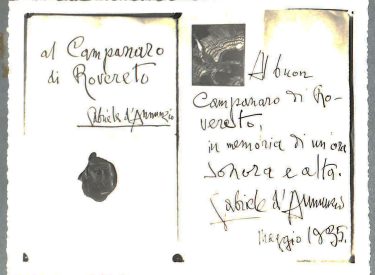 al Campanaro
di Rovereto
Gabriele d'Annunzio
Al buon
Campanaro di Ro-
vereto,
in memoria di un'ora
sonora e alta.
Gabriele d'Annunzio
Maggio 1935.